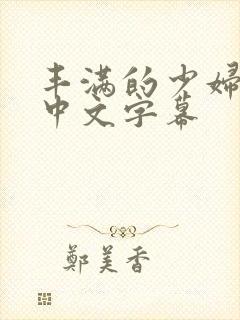 丰满的少婦
中文字幕
鄭美香